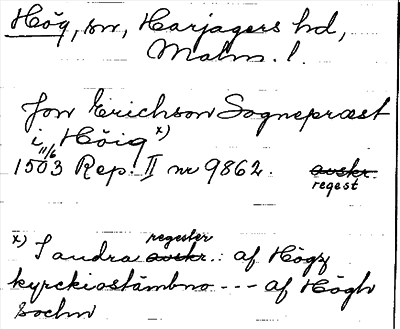 Hög, sn, Harjagers hd,
Malm. l.
Jon Erichson Sognepræst
i Höig x)
11/6
1503 Rep. II nr 9862. avskr.
regest
regester
x) I andra avskr.: af Högz
kyrckiostämbno --- af Högh
sochn